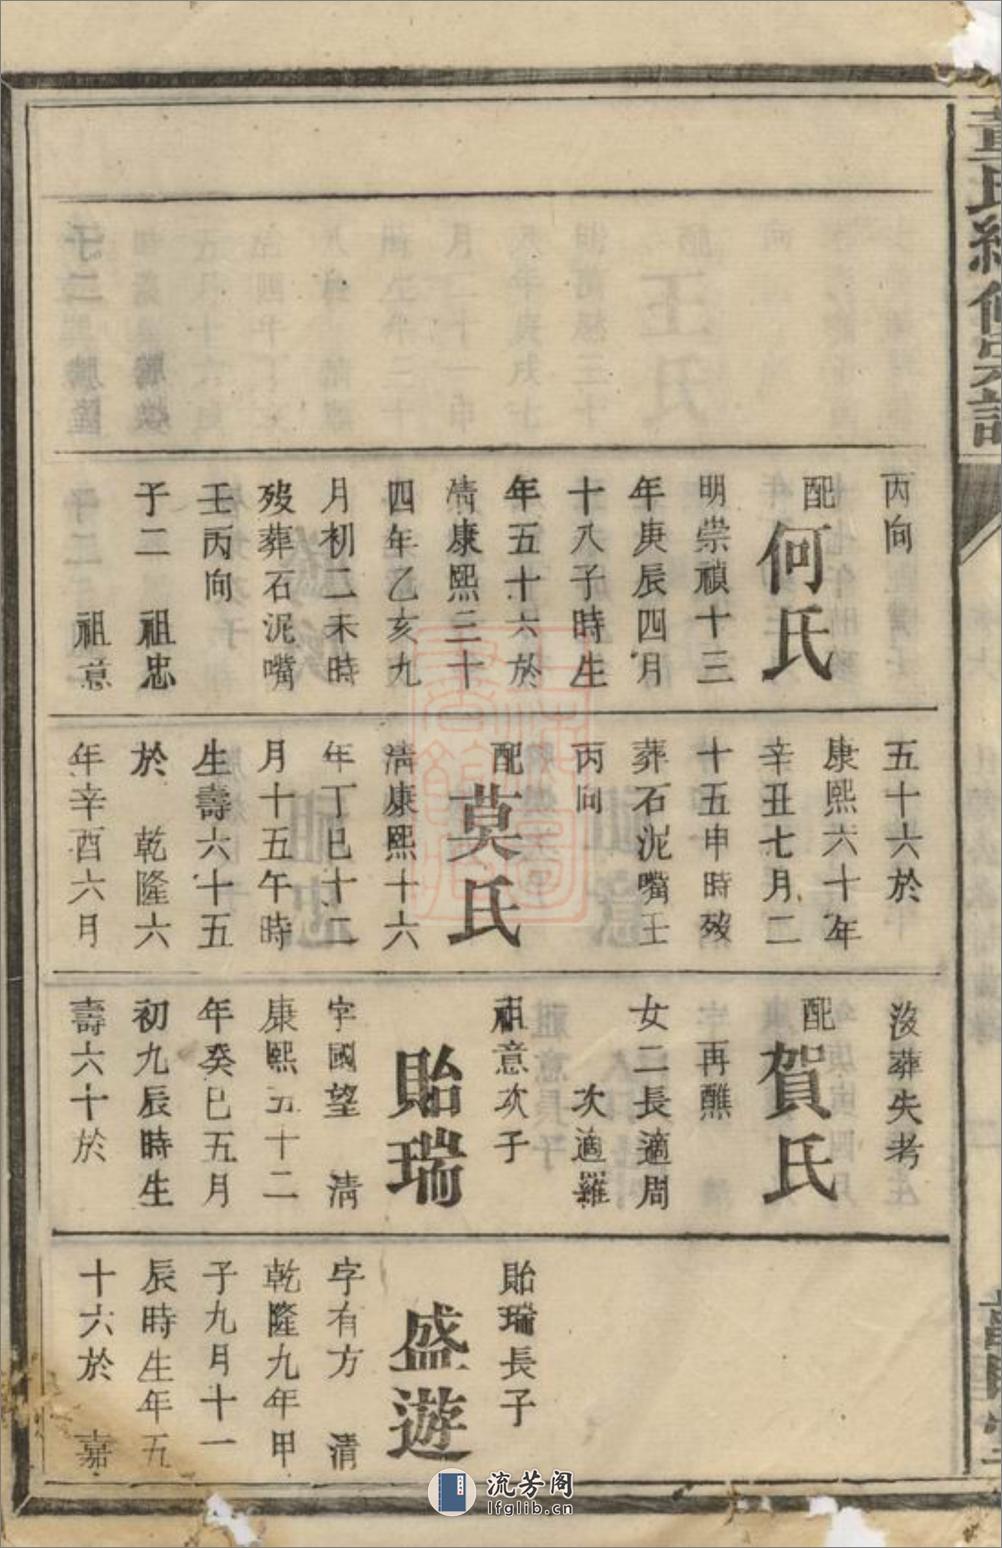 丙向
配何氏
明崇禎十三
年庚辰四月
十八子時生
年五十六於
清康熙三十
四年乙亥九
月初二未時
歿葬石泥嘴
壬丙向
子二 祖忠
祖意
五十六於
康熙六十年
辛丑七月二
十五申時歿
葬石泥嘴壬
丙向
配莫氏
清康熙十六
年丁巳十二
月十五午時
生壽六十五
於 乾隆六
年辛酉六月
沒葬失考
配賀氏
字再醮
女二長適周
次適羅
祖意次子
貽瑞
字國望 清
康熙五十二
年癸巳五月
初九辰時生
壽六十於
貽瑞長子
盛遊
字有方 清
乾隆九年甲
子九月十一
辰時生年五
十六於 嘉
流芳阁
lfglib.cn